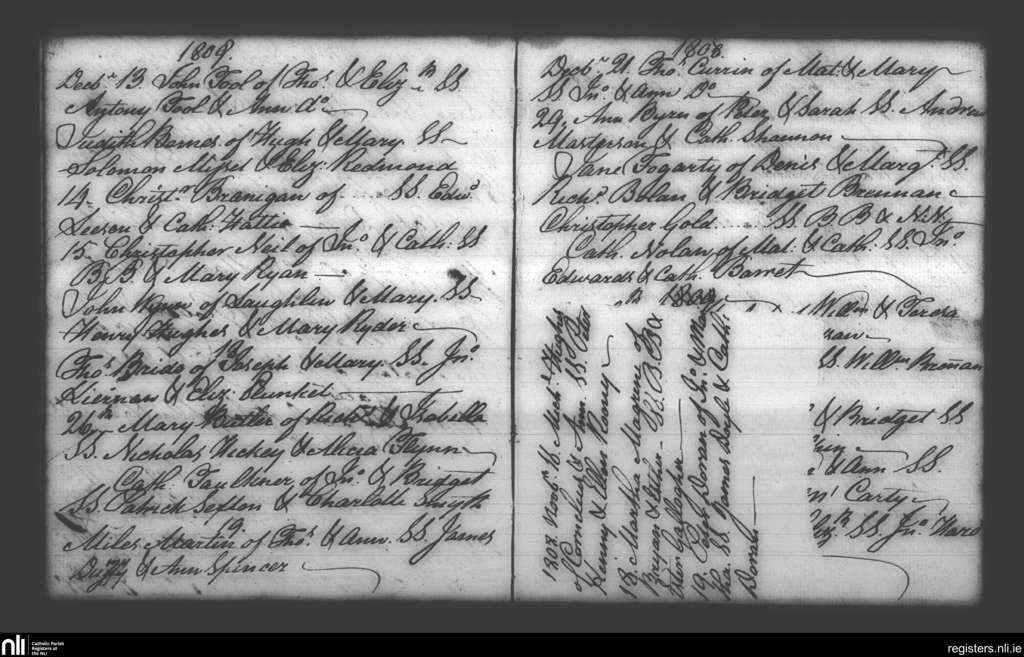 1808.
Decbr 13. John Tool of Thos. & Eliz.th SS
Antony Tool & Ann do.
Judith Barnes of Hugh & Mary. SS
Solomon & Eliz. Redmond
14. Christr. Branigan of .... SS. Edwd.
Leeson & Cath. Hattie
15. Christopher Neil of Jno. & Cath. SS
B.B. & Mary Ryan
John of Laughlin & Mary. SS
Henry Hughes & Mary Ryder
18
Thos. Bride of Joseph & Mary. SS. Jno.
Kiernan & Eliz. Plunket
26th Mary Butler of & Isabella
SS. Nicholas Hickey & Alicia Flynn
Cath. Faulkner of Jno. & Bridget
SS. Patrick Sexton & Charlotte Smyth
19
Miles Martin of Thos. & Ann. SS. James
Duffy & Ann Spencer
1808.
Decbr. 21. Thos. Currin of Mat. & Mary
SS Jno. & Ann Do.
29. Ann Byrn of Peter & Sarah SS. Andrew
Masterson & Cath. Shannon
Jane Fogarty of Denis & Margt. SS.
Richd. Bolan & Bridget Brennan
Christopher Gold ..... SS B B & N.N.
Cath. Nolan of Mat. & Cath. SS. Jno.
Edwards & Cath. Barret
1809
Willm & Teresa
SS. Willm Brennan
& Bridget SS
& Ann SS.
Carty
SS. Jno. Ward
1807. Novbr. 16. Mich. Hughes
of Cornelius & Ann. SS. Peter
Kinny & Ellen Rooney
18. Martha Magrene of
Bryan & Esther - SS. B.B. &
Ellen Gallagher
19. Doran of Jno. & Mary
SS. James Doyle & Cath.
nli
Catholic Parish
Registers at
the NLI
registers.nli.ie